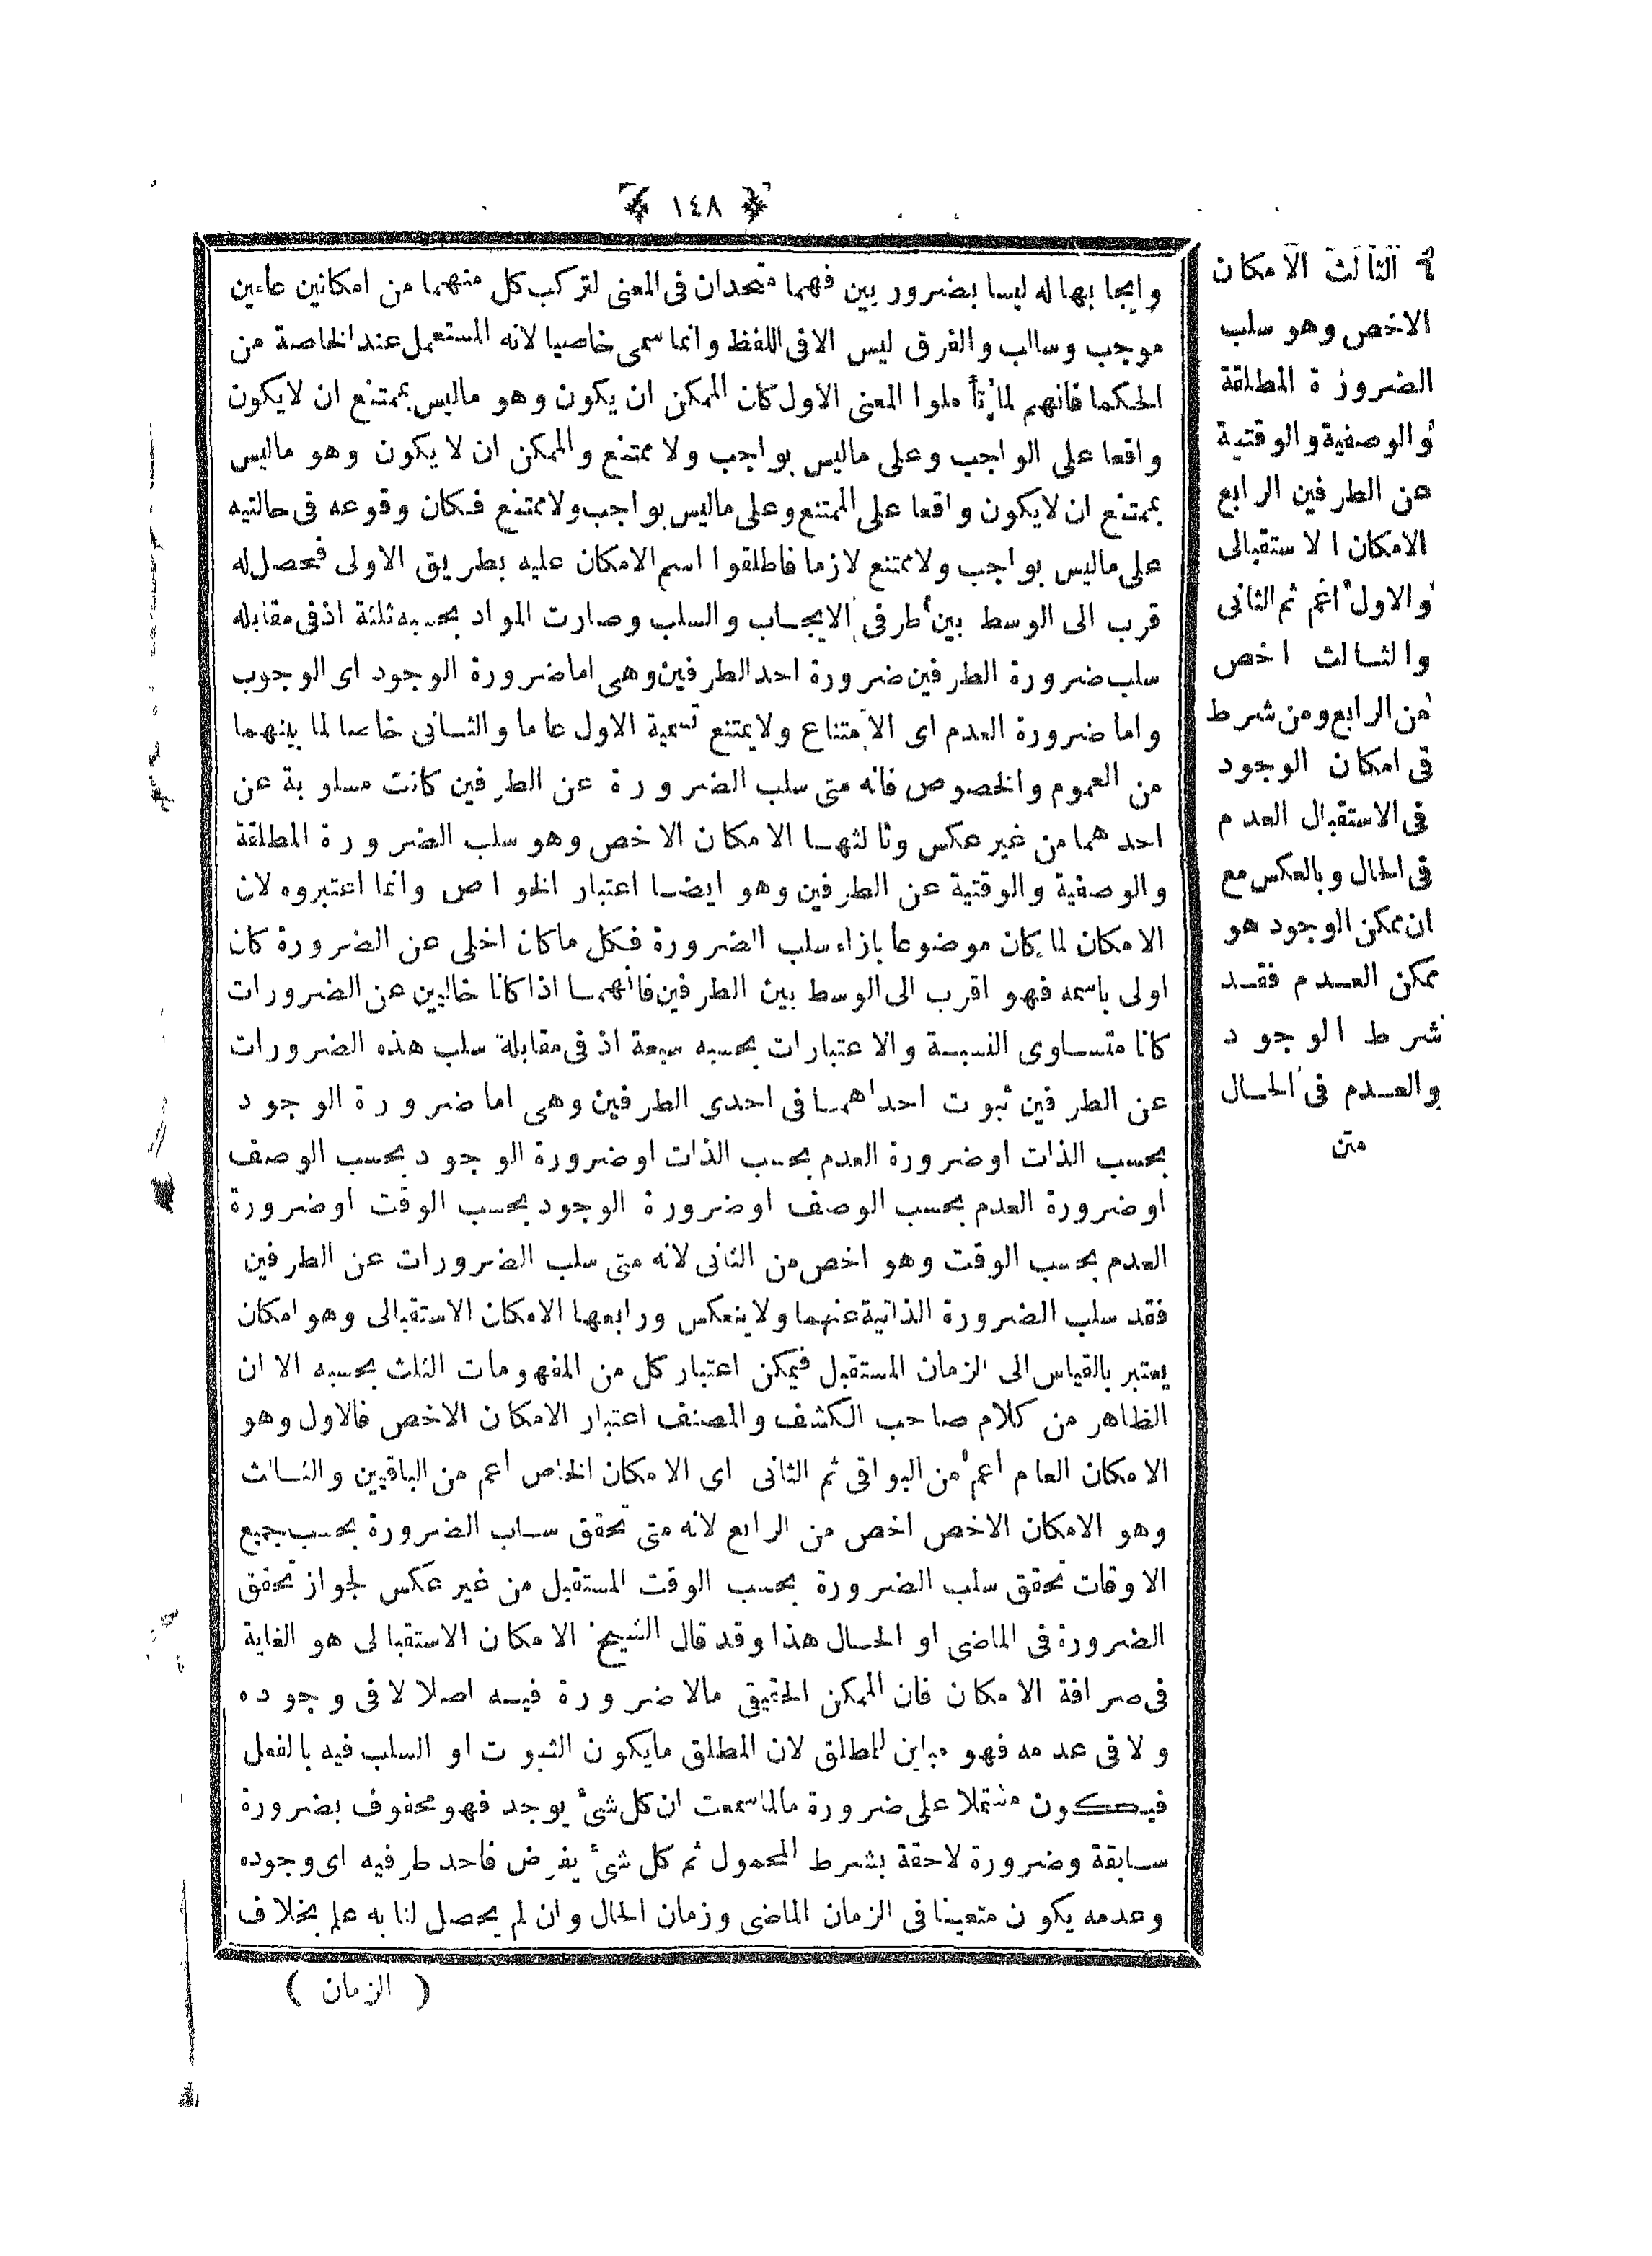 ١٤٨
وايجابها له ليسا بضروريين فهما متحدان فى المعنى لتركب كل منهما من امكانين عامين
موجب وسالب والفرق ليس الا فى اللفظ وانما سمى خاصيا لانه المستعمل عند الخاصة من
الحكما فانهم لما تأملوا المعنى الاول كان الممكن ان يكون وهو ماليس بممتنع ان لايكون
واقعا على الواجب وعلى ماليس بواجب ولا ممتنع والممكن ان لا يكون وهو ماليس
بممتنع ان لايكون واقعا على الممتنع وعلى ماليس بواجب ولاممتنع فكان وقوعه فى حالتيه
على ماليس بواجب ولاممتنع لازما فاطلقوا اسم الامكان عليه بطريق الاولى فحصل له
قرب الى الوسط بين طرفى الايجاب والسلب وصارت المواد بحسبه ثلثة اذ فى مقابله
سلب ضرورة الطرفين ضرورة احد الطرفين وهى اما ضرورة الوجود اى الوجوب
واما ضرورة العدم اى الامتناع ولايمتنع تسمية الاول عاما والثانى خاصا لما بينهما
من العموم والخصوص فانه متى سلب الضرورة عن الطرفين كانت مسلوبة عن
احدهما من غير عكس وثالثها الامكان الاخص وهو سلب الضرورة المطلقة
والوصفية والوقتية عن الطرفين وهو ايضا اعتبار الخواص وانما اعتبروه لان
الامكان لما كان موضوعا بازاء سلب الضرورة فكل ماكان اخلى عن الضرورة كان
اولى باسمه فهو اقرب الى الوسط بين الطرفين فانهما اذا كانا خاليين عن الضرورات
كانا متساوى النسبة والاعتبارات بحسبه سبعة اذ فى مقابلة سلب هذه الضرورات
عن الطرفين ثبوت احداهما فى احدى الطرفين وهى اما ضرورة الوجود
بحسب الذات اوضرورة العدم بحسب الذات اوضرورة الوجود بحسب الوصف
اوضرورة العدم بحسب الوصف اوضرورة الوجود بحسب الوقت اوضرورة
العدم بحسب الوقت وهو اخص من الثانى لانه متى سلب الضرورات عن الطرفين
فقد سلب الضرورة الذاتية عنهما ولاينعكس ورابعها الامكان الاستقبالى وهو امكان
يعتبر بالقياس الى الزمان المستقبل فيمكن اعتبار كل من المفهومات الثلث بحسبه الا ان
الظاهر من كلام صاحب الكشف والمصنف اعتبار الامكان الاخص فالاول وهو
الامكان العام اعم من البواقى ثم الثانى اى الامكان الخاص اعم من الباقيين والثالث
وهو الامكان الاخص اخص من الرابع لانه متى تحقق سلب الضرورة بحسب جميع
الاوقات تحقق سلب الضرورة بحسب الوقت المستقبل من غير عكس لجواز تحقق
الضرورة فى الماضى او الحال هذا وقد قال الشيخ الامكان الاستقبالى هو الغاية
فى صرافة الامكان فان الممكن الحقيقى مالا ضرورة فيه اصلا لا فى وجوده
ولا فى عدمه فهو مباين للمطلق لان المطلق مايكون الثبوت او السلب فيه بالفعل
فيكون مشتملا على ضرورة مالما سمعت ان كل شئ يوجد فهو محفوف بضرورة
سابقة وضرورة لاحقة بشرط المحمول ثم كل شئ يفرض فاحد طرفيه اى وجوده
وعدمه يكون متعينا فى الزمان الماضى وزمان الحال وان لم يحصل لنا به علم بخلاف
( الزمان )
الثالث الامكان
الاخص وهو سلب
الضرورة المطلقة
والوصفية والوقتية
عن الطرفين الرابع
الامكان الاستقبالى
والاول اعم ثم الثانى
والثالث اخص
من الرابع ومن شرط
فى امكان الوجود
فى الاستقبال العدم
فى الحال وبالعكس مع
ان ممكن الوجود هو
ممكن العدم فقد
شرط الوجود
والعدم فى الحال
متن